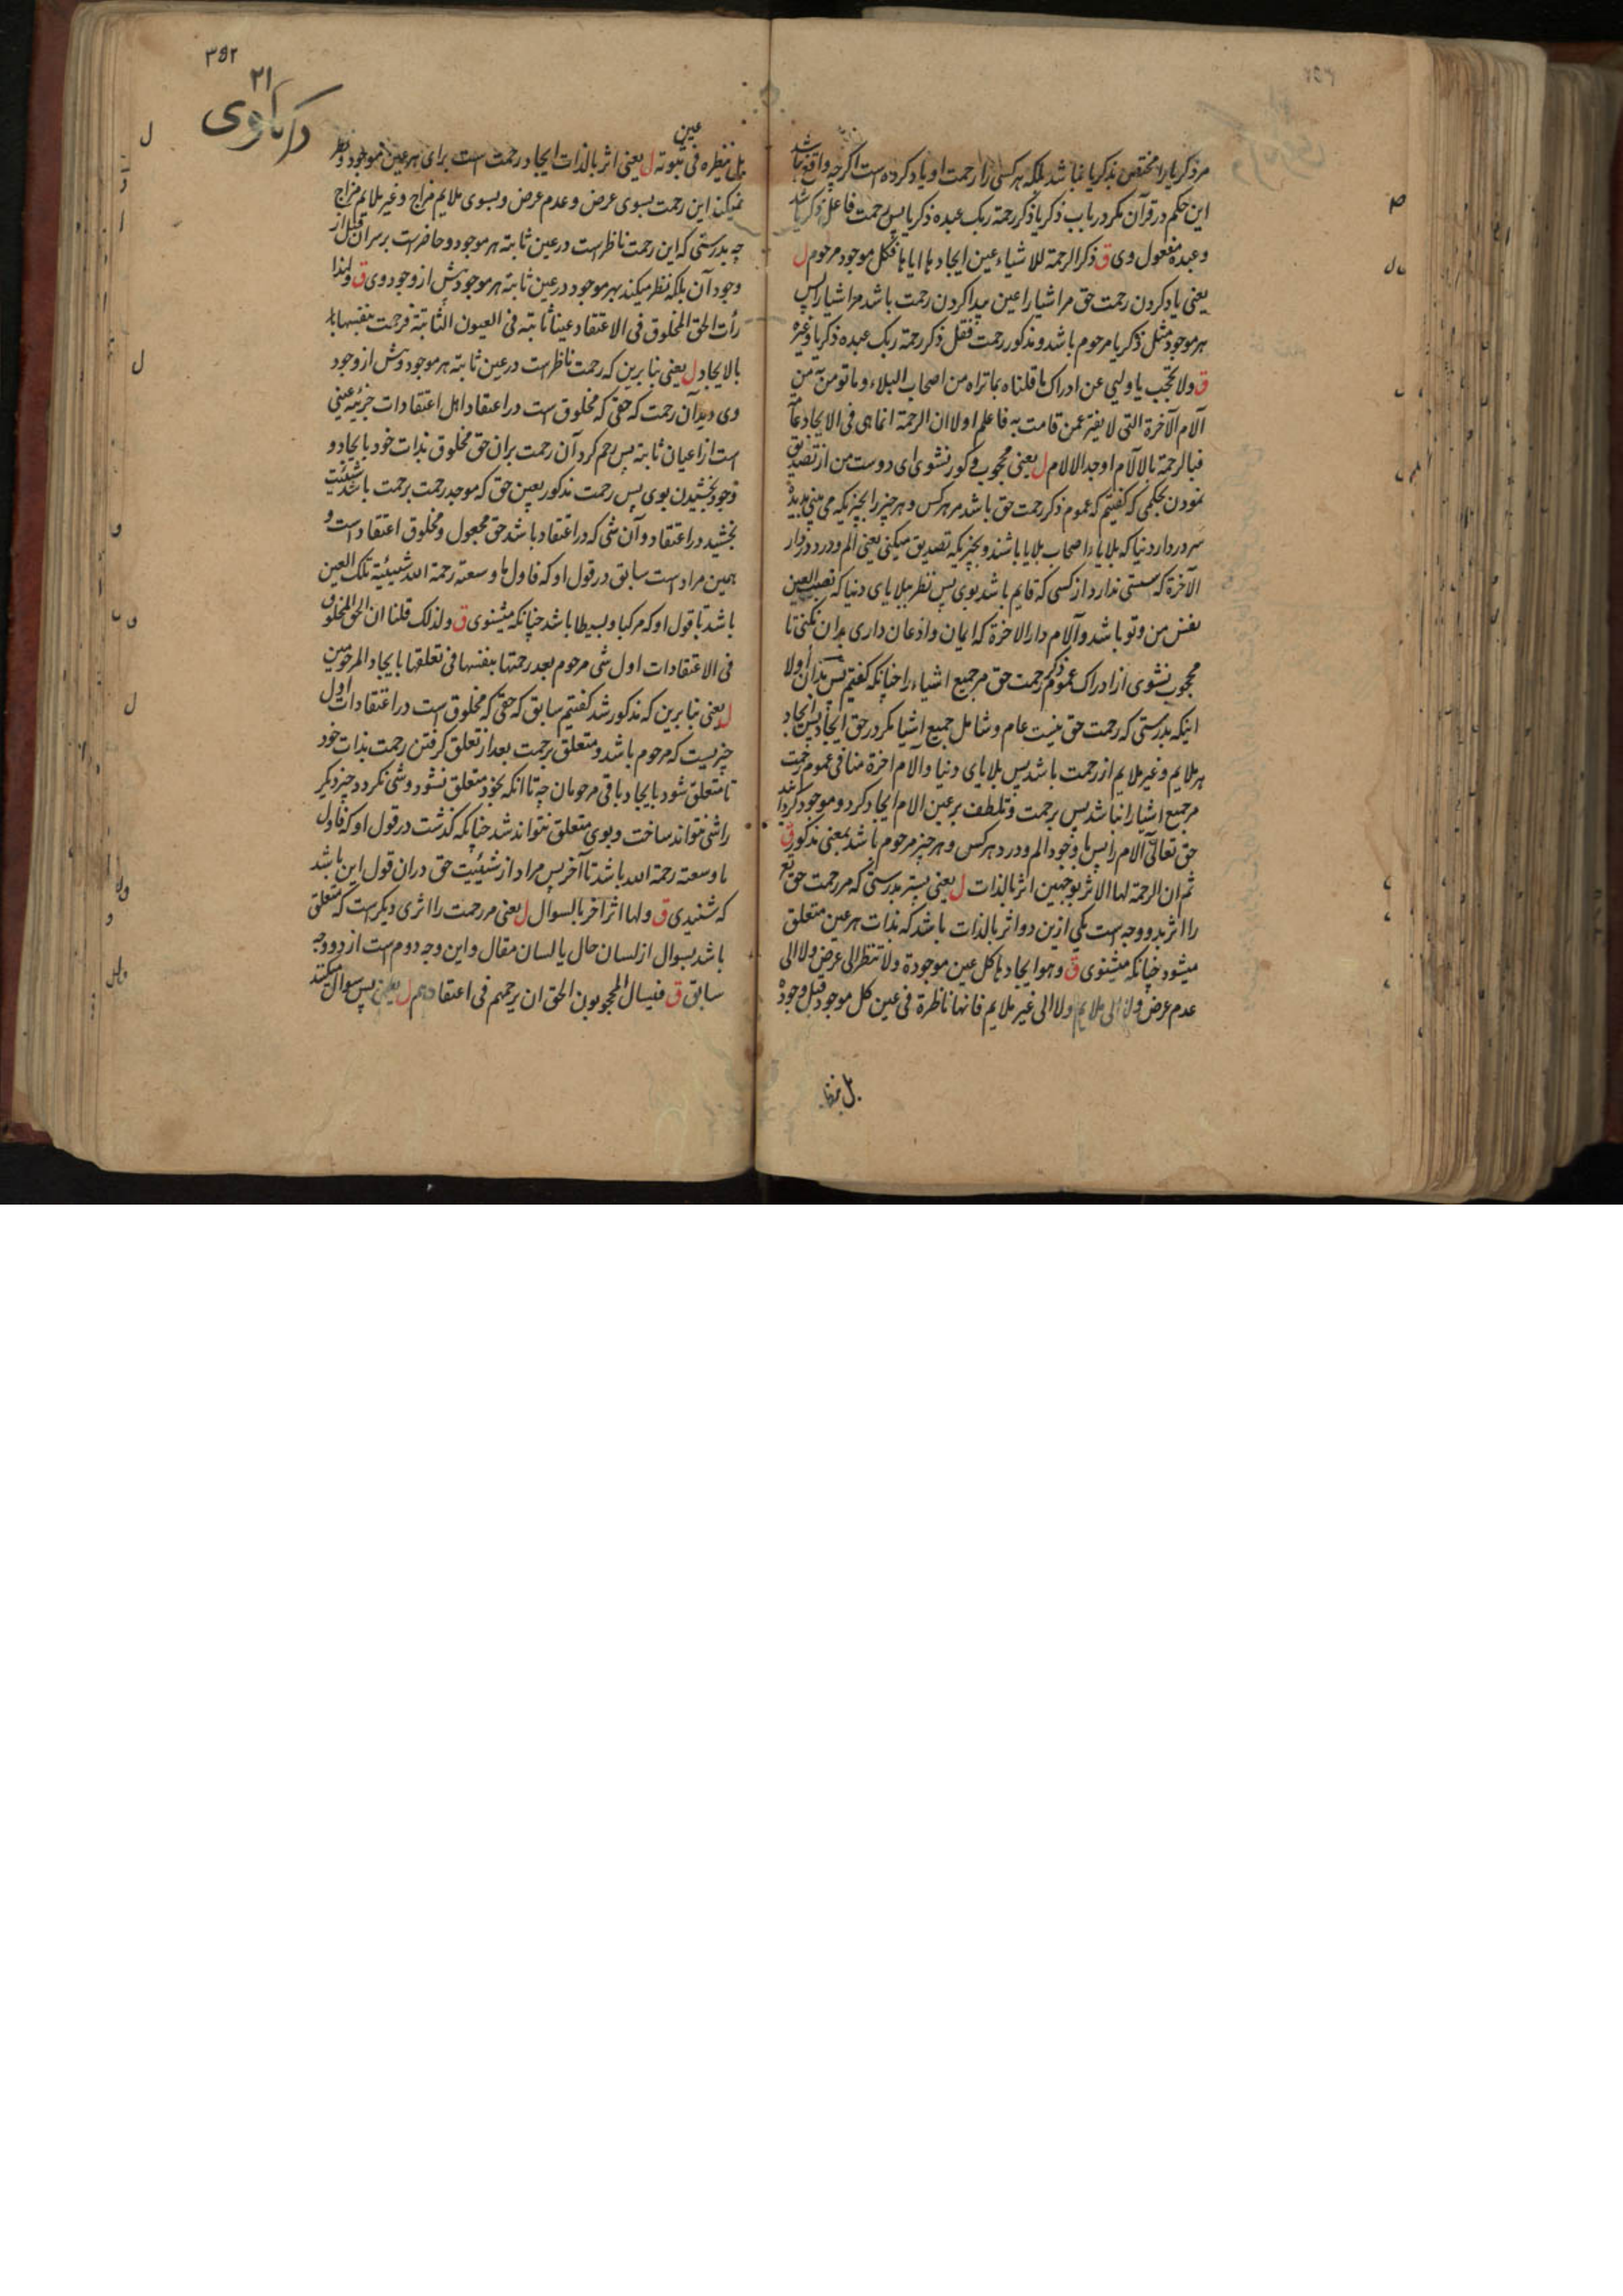 مر ذکریا را مختص بذکریا نباشد بلکه هر کسی را رحمت او یاد کرده است اکرچه واقع نباشد
این حکم در قرآن مکر در باب ذکریا ذکر رحمة ربک عبده ذکریا پس رحمت فاعل ذکر باشد
و عبده مفعول وی ق ذکر الرحمة للاشیاء عین ایجادها ایاها فکل موجود مرحوم ل
یعنی یاد کردن رحمت حق مر اشیا را عین پیدا کردن رحمت باشد مر اشیا را پس
هر موجود مثل ذکریا مرحوم باشد و مذکور رحمت فقل ذکر رحمة ربک عبده ذکریا و غیره
ق ولا تحجب یا ولیی عن ادراک ما قلناه بما تراه من اصحاب البلاء و ما تومن به من
آلام الآخرة التی لا یفتر عمن قامت به فاعلم اولا ان الرحمة انما هی فی الایجاد عامة
فبالرحمة بالآلام اوجد الالام ل یعنی محجوب و کور نشوی ای دوست من از تصدیق
نمودن بحکمی که کفتیم که عموم ذکر رحمت حق باشد مر هر کس و هر چیز را بچیزیکه می بینی بدیدهٔ
سر در دار دنیا که بلایاء اصحاب بلایا باشند و بچیزیکه تصدیق میکنی یعنی الم و درد در دار
الآخرة که سستی ندارد از کسی که قایم باشد بوی پس نظر ببلایای دنیا که نصب العین
نفس من و تو باشد و آلام دار الاخرة که ایمان و اذعان داری بدان نکنی تا
محجوب نشوی از ادراک عموم ذکر رحمت حق مر جمیع اشیاء را چنانکه کفتیم پس بدان اولا
اینکه بدرستی که رحمت حق نیست عام و شامل جمیع اشیا مکر در حق ایجاد پس ایجاد
هر ملایم و غیر ملایم از رحمت باشد پس بلایای دنیا و آلام اخرة منافی عموم رحمت
مر جمیع اشیا را نباشد پس برحمت و تلطف بر عین الام ایجاد کرد و موجود کردانید
حق تعالی آلام را پس با وجود الم و درد هر کس و هر چیز مرحوم باشد بمعنی مذکور ق
ثم ان الرحمة لها الاثر بوجهین اثر بالذات ل یعنی پستر بدرستی که مر رحمت حق تع
را اثر بدو وجه است یکی ازین دو اثر بالذات باشد که بذات هر عین متعلق
میشود چنانکه میشنوی ق و هو ایجادها کل عین موجودة ولا تنظر الی عرض ولا الی
عدم عرض ولا الی ملایم ولا الی غیر ملایم فانها ناظرة فی عین کل موجود قبل وجوده
بل تنظره
۳۹۲
۲۱
ذکریاوی
عین
بل تنظره فی ثبوته ل یعنی اثر بالذات ایجاد رحمت است برای هر عین موجود و نظر
نمیکند این رحمت بسوی عرض و عدم عرض و بسوی ملایم مزاج و غیر ملایم مزاج
چه بدرستی که این رحمت ناظر است در عین ثابتهٔ هر موجود و حاضر است بر سر آن قبل از
وجود آن بلکه نظر میکند بهر موجود در عین ثابتهٔ هر موجود پیش از وجود وی ق و لهذا
رأت الحق المخلوق فی الاعتقاد عینا ثابتة فی العیون الثابتة فرحمت بنفسها
بالایجاد ل یعنی بنابرین که رحمت ناظر است در عین ثابتهٔ هر موجود پیش از وجود
وی دید آن رحمت که حقی که مخلوق است در اعتقاد اهل اعتقادات جزئیه عینی
است از اعیان ثابته پس رحم کرد آن رحمت بران حق مخلوق بذات خود بایجاد و
وجود بخشیدن بوی پس رحمت مذکور بعین حق که موجد رحمت برحمت باشد شیئیت
بخشید در اعتقاد و آن شی که در اعتقاد باشد حق مجعول و مخلوق اعتقاد است و
همین مراد است سابق در قول او که فاول ما وسعته رحمة الله شیئیة تلک العین
باشد تا قول او که مرکبا و بسیطا باشد چنانکه میشنوی ق و لذلک قلنا ان الحق المخلوق
فی الاعتقادات اول شی مرحوم بعد رحمتها بنفسها فی تعلقها بایجاد المرحومین
ل یعنی بنابرین که مذکور شد کفتیم سابق که حقی که مخلوق است در اعتقادات اول
چیزیست که مرحوم باشد و متعلق برحمت بعد از تعلق کرفتن رحمت بذات خود
تا متعلق شود بایجاد باقی مرحومان چه تا انکه بخود متعلق نشود و شی نکردد چیز دیکر
را شی نتواند ساخت و بوی متعلق نتواند شد چنانکه کذشت در قول او که فاول
ما وسعته رحمة الله باشد تا آخر پس مراد از شیئیت حق دران قول این باشد
که شنیدی ق و لها اثر اخر بالسوال ل یعنی مر رحمت را اثری دیکر است که متعلق
باشد بسوال از لسان حال یا لسان مقال و این وجه دوم است از دو وجه
سابق ق فیسال المحجوبون الحق ان یرحمهم فی اعتقادهم ل یعنی پس سوال میکنند